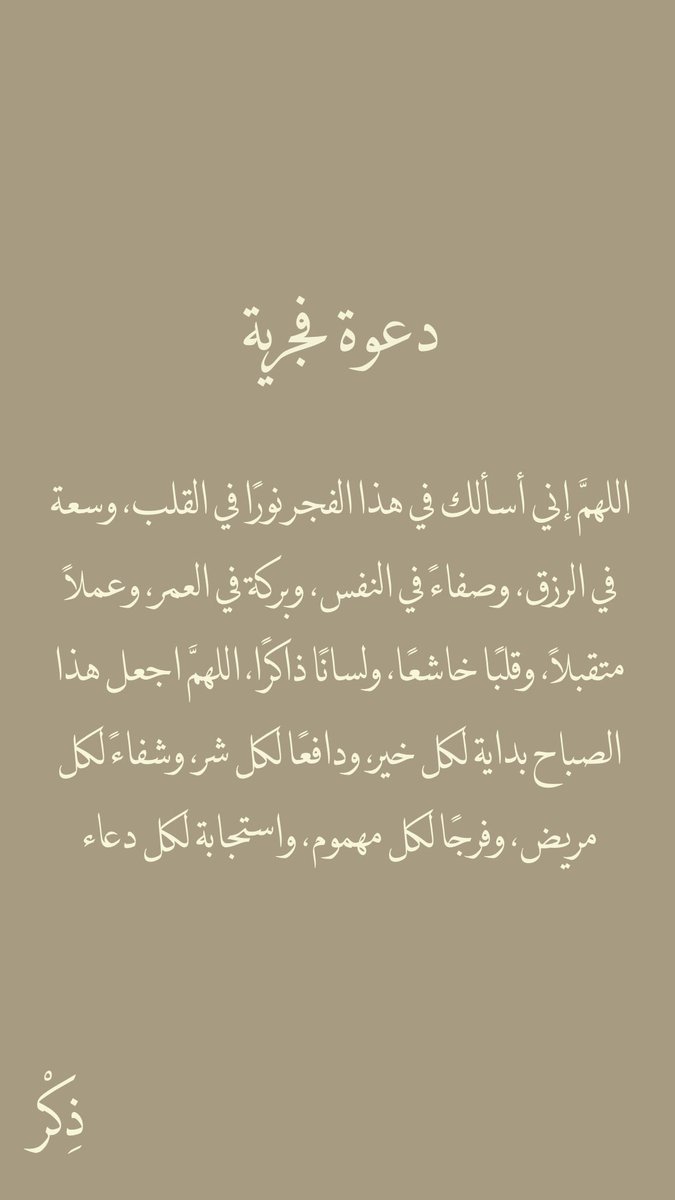 دعوة فجرية
اللهمَّ إني أسألك في هذا الفجر نورًا في القلب، وسعة
في الرزق، وصفاءً في النفس، وبركة في العمر، وعملاً
متقبلاً، وقلبًا خاشعًا، ولسانًا ذاكرًا، اللهمَّ اجعل هذا
الصباح بداية لكل خير، ودافعًا لكل شر، وشفاءً لكل
مريض، وفرجًا لكل مهموم، واستجابة لكل دعاء
ذِكْر